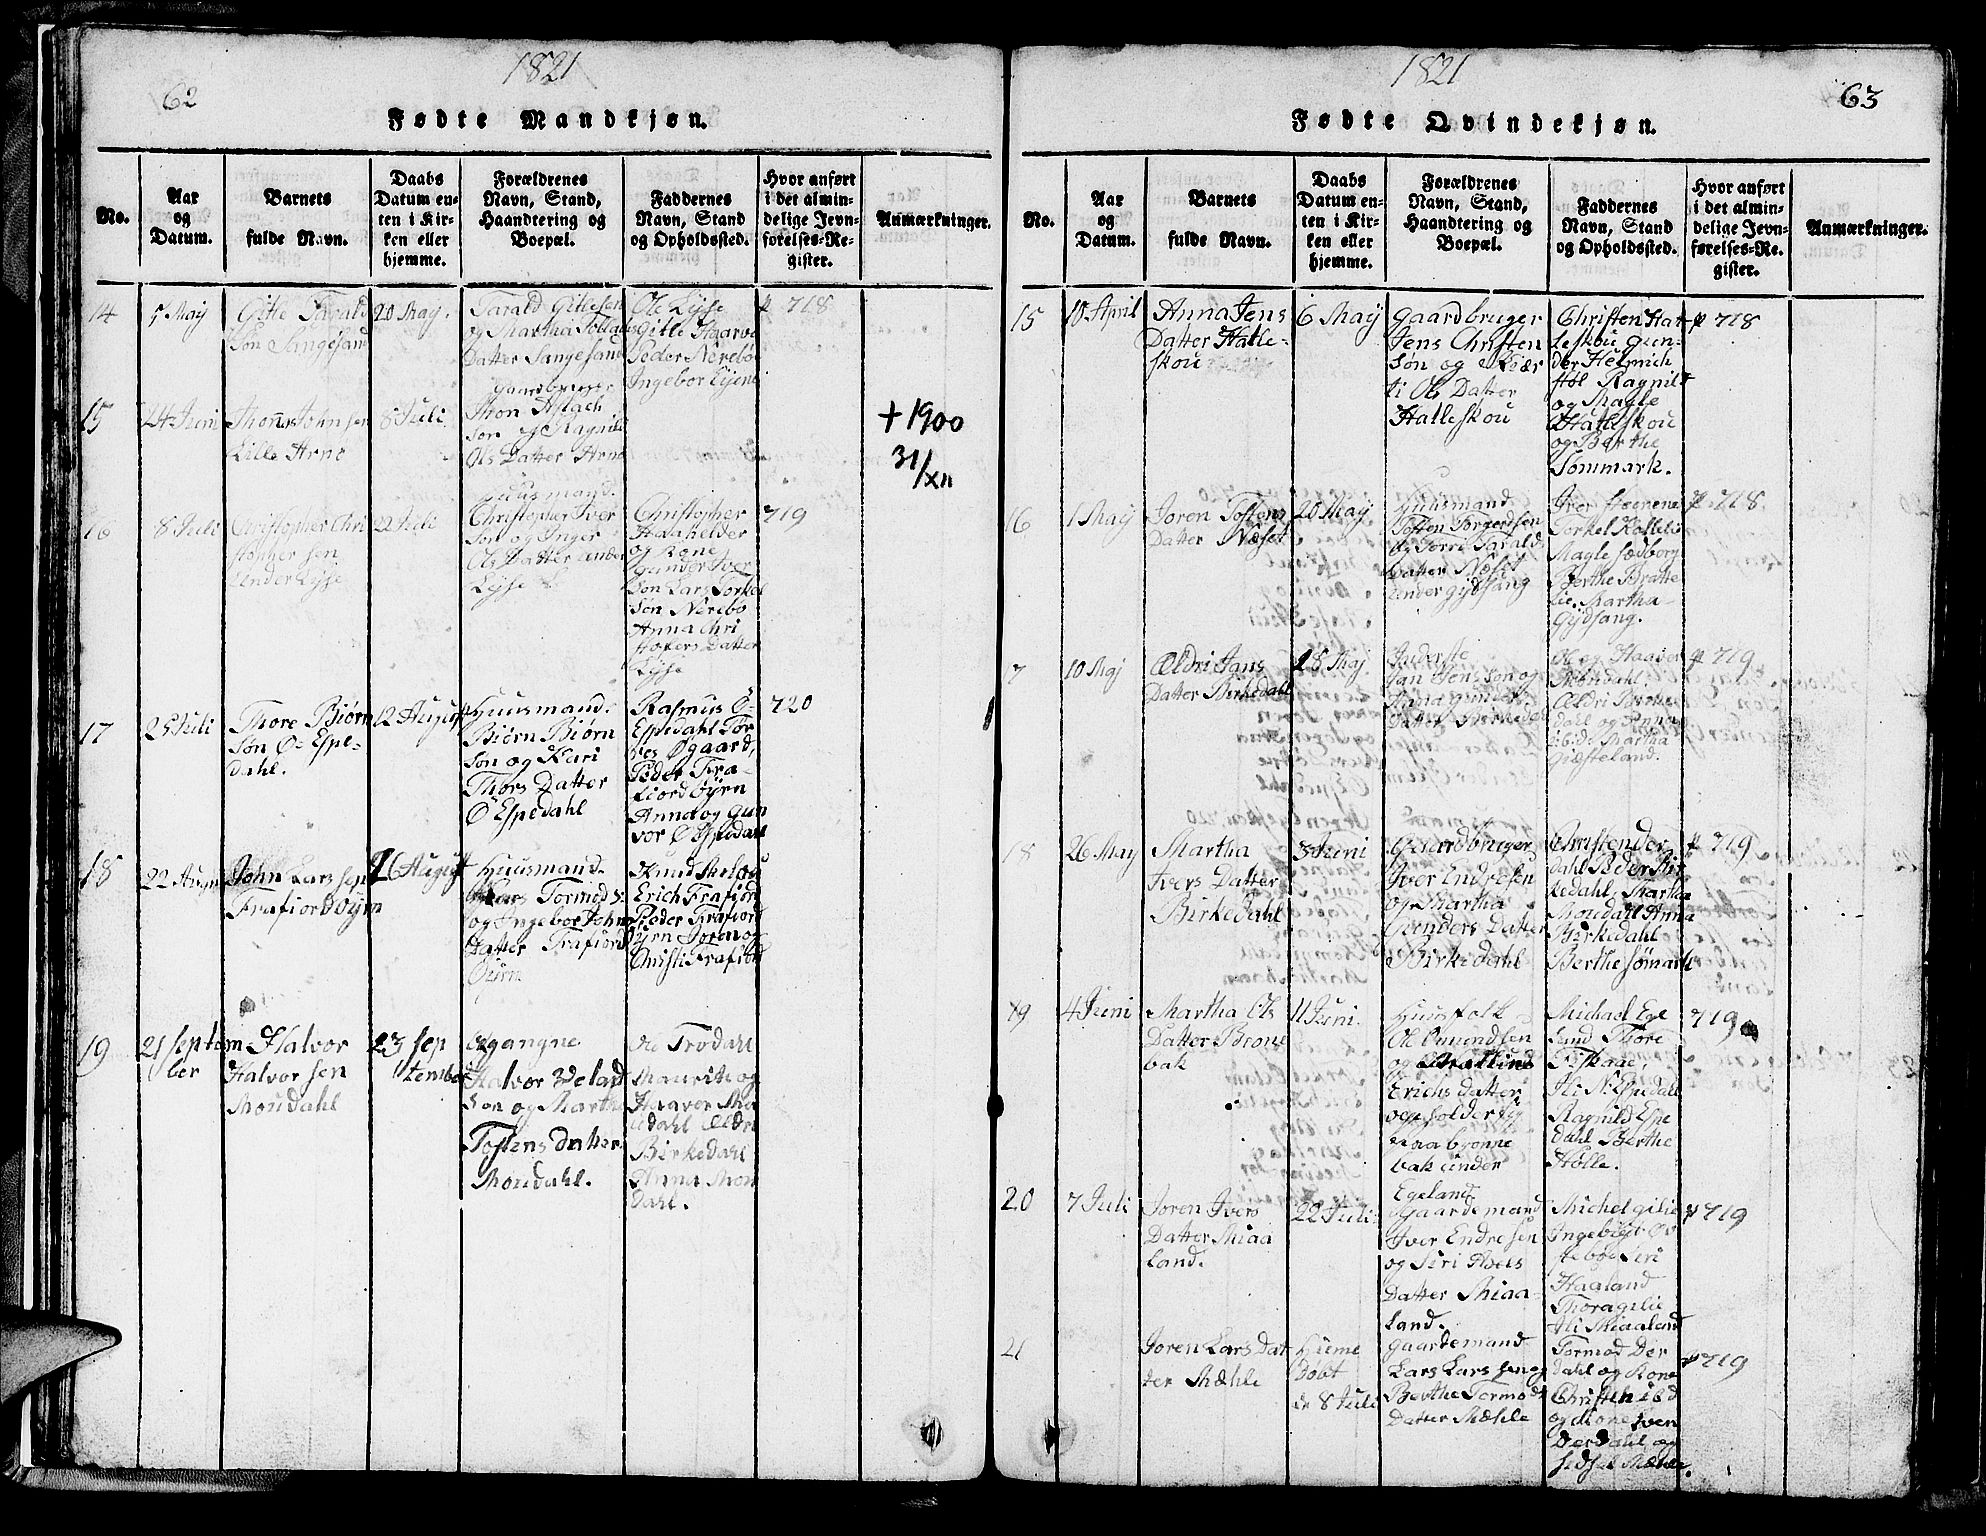 62
1821
Fødte Mandkjøn.
No.
Aar
og
Datum.
Barnets
fulde Navn.
Daabs
Datum en-
ten i Kir-
ken eller
hjemme.
Forældrenes
Navn, Stand,
Haandtering og
Boepæl.
Faddernes
Navn, Stand
og Opholdssted.
Hvor anført
i det almin-
delige Jevn-
førelses-Re-
gister.
Anmærkninger.
14
5 Maÿ
Gitle Tarald
Søn Sangesand
20 Maÿ.
Tarald Gitlesen
og Martha
Datter Sangesand
Gaardbruger
Ole Lÿse
Gitle Haarve
Peder Nerebø
Ingebor
718
15
24 Juni
Thomas Johnsen
Lille Arne
8 Juli
Jhon Aslach
Søn og Ragnild
Ols Datter Arne
+ 1900
31/XII
16
8 Juli
Christopher Chri
stopher sen
under Lÿse
22 Juli
Huusmand.
Christopher Iver
Søn og Inger
Ols Datter under
Lÿse
Christopher
Haahelder
og Kone
Gunder Iver
Søn Lars Torkel
Søn Nerebø
Anna Chri
stofers Datter
Lÿse
719
17
25 Juli
Thore Biørn
Søn Ø- Espe-
dahl.
12 August
Huusmand.
Biørn Biørn
Søn og Kari
Thors Datter
Ø Espedahl
Rasmus Ø-
Espedahl Tor
Øgaard,
Peder Fra-
fiord Øÿrn
Anna og Gun
vor Ø Espedahl
720
18
22 August
John Lars sen
Frafiord Øÿrn
26 August
Huusmand.
Lars Tormods:
og Ingebor Johns
Datter Frafiord
Øÿrn
Knud Meløe
Erich Frafiord
Peder Frafiord
Øÿrn Joren og
Christi Frafiord
19
21 Septem
ber
Halvor
Halvor sen
Moudahl
23 Sep
tember
Halvor
Søn og Martha
Tostens Datter
Moudahl.
Ole Trodahl
Maurits og
Haavor Mo
udahl Eldri
Birkedahl
Anna Mou
dahl.
1821
63
Fødte Qvindekjøn.
No.
Aar
og
Datum.
Barnets
fulde Navn.
Daabs
Datum en-
ten i Kir-
ken eller
hjemme.
Forældrenes
Navn, Stand,
Haandtering og
Boepæl.
Faddernes
Navn, Stand
og Opholdssted.
Hvor anført
i det almin-
delige Jevn-
førelses-Re-
gister.
Anmærkninger.
15
18 April
Anna Jens
Datter Halle-
skou
6 Maÿ
Gaardbruger
Jens Christen
Søn og Kiær
ti Ols Datter
Halleskou
Christen Hal-
leskou Gun-
der Helmich
støl Ragnild
og Magle
Halleskou
og Berthe
Sømmark.
718
16
1 Maÿ
Joren Tostens
Datter Næset
20 Maÿ
Huusmand
Tosten Torgerdsen
og Torri Tarald
Datter Næset
under Gÿdsang
Iver
Torkel Kolleli
Magle Sædberg
Berthe Bratte
lie, Martha
Gÿdsang.
718
7
10 Maj
Ældri Jans
Datter Birkedahl
18 Maj
Inderste
Jan Jens søn og
Anna Gunders
Datter Birkedahl
Ole og Haavor
Moudahl
Ældri Birke
dahl og Anna
ibid: Martha
Giæsteland.
719
18
26 Maÿ
Martha
Ivers Datter
Birkedahl
3 Juni
Gaardbruger
Iver Endresen
og Martha
Gunders Datter
Birkedahl
Christen Der
dahl Peder Bir
kedahl, Martha
Moudahl Anna
Birkedahl
Berthe Sømark
719
19
4 Juni
Martha Ols
Datter Brone
bak
11 Juni.
Huusfolk
Ole Omundsen
og
Erichs Datter
opholder sig
paa Bronne
bak under
Egeland
Michael Ege
land Thore
Eskaae,
Eli N: Espedahl
Ragnild Espe
dahl Berthe
Hølle.
719
20
7 Juli
Joren Ivers
Datter Miaa
land.
22 Juli
Gaardemand
Iver Endresen
og Siri Axels
Datter Miaa-
land.
Michel Gilie
Ingebrigt Øv
stebø Siri
Haaland
Thora Gilie
Eli Miaaland
719
21
Joren Lars Dat
ter Mæhle
Hiime
Døbt
d: 8 Juli
Gaardemand
Lars Lars sen og
Berthe Tormods
Datter Mæhle
Tormod Der
dahl og Kone
Christen ibd
og Kone Sven
Derdahl og
Sidsel Mæhle.
719